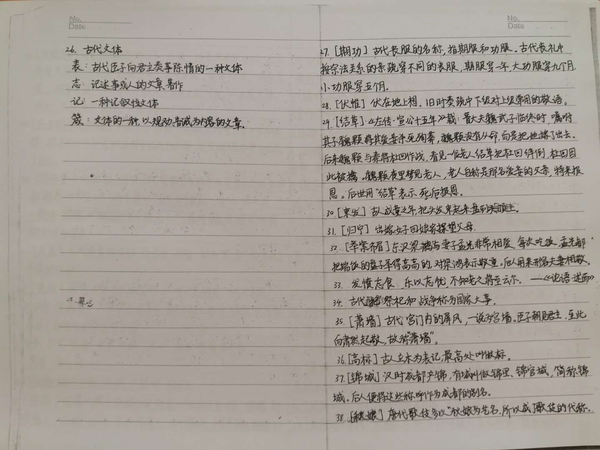 No.
Date
26. 古代文体
表：古代臣子向君主奏事陈情的一种文体
志：记述事或人的文章、著作
记：一种记叙性文体
箴：文体的一种，以规劝、告诫为内容的文章。
No.
Date
27.［期功］古代丧服的名称，指期服和功服。古代丧礼中
按宗法关系的亲疏穿不同的丧服，期服穿一年，大功服穿九个月
小功服穿五个月。
28.［伏惟］伏在地上想，旧时奏疏中下级对上级常用的敬语。
29.［结草］《左传·宣公十五年》载：晋大夫魏武子临死时，嘱咐
其子魏颗将其爱妾杀死殉葬，魏颗没有从命，而是把她嫁了出去。
后来魏颗与秦将杜回作战，看见一位老人结草把杜回绊倒，杜回因
此被擒。魏颗夜里梦见老人，老人自称是那名爱妾的父亲，特来报
恩。后世用“结草”表示死后报恩。
30［束发］古人成童之年，把头发束起来盘到头顶上。
31.［归宁］出嫁女子回娘家探望父母
32.［举案齐眉］东汉梁鸿与妻子孟光非常相敬，每次吃饭，孟光都
把端饭的盘子举得高高的，对梁鸿表示敬重。后人用来形容夫妻相敬。
33. 发愤忘食，乐以忘忧，不知老之将至云尔。——《论语·述而》
34. 古代祭祀和战争称为国家大事。
35.［萧墙］古代宫门内的屏风，一说为宫墙。臣子朝见君主，至此
而肃然起敬，故称“萧墙”。
36［高标］古人立木为表记，最高处叫做标。
37.［锦城］汉时成都产锦，有城叫做锦里、锦官城，简称锦
城。后人便将这些称呼作为成都的别名。
38.［秋娘］唐代歌伎多以“秋娘”为名，所以成了歌伎的代称。